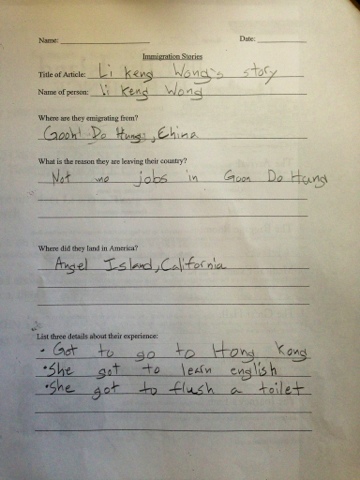 Name: Date:
Immigration Stories
Title of Article: Li keng Wong's story
Name of person: Li keng Wong
Where are they emigrating from?
Gooh! Do Hung, China
What is the reason they are leaving their country?
Not no jobs in Goon Do Hung
Where did they land in America?
Angel Island, California
List three details about their experience:
• Got to go to Hong Kong
• She got to learn english
• She got to flush a toilet